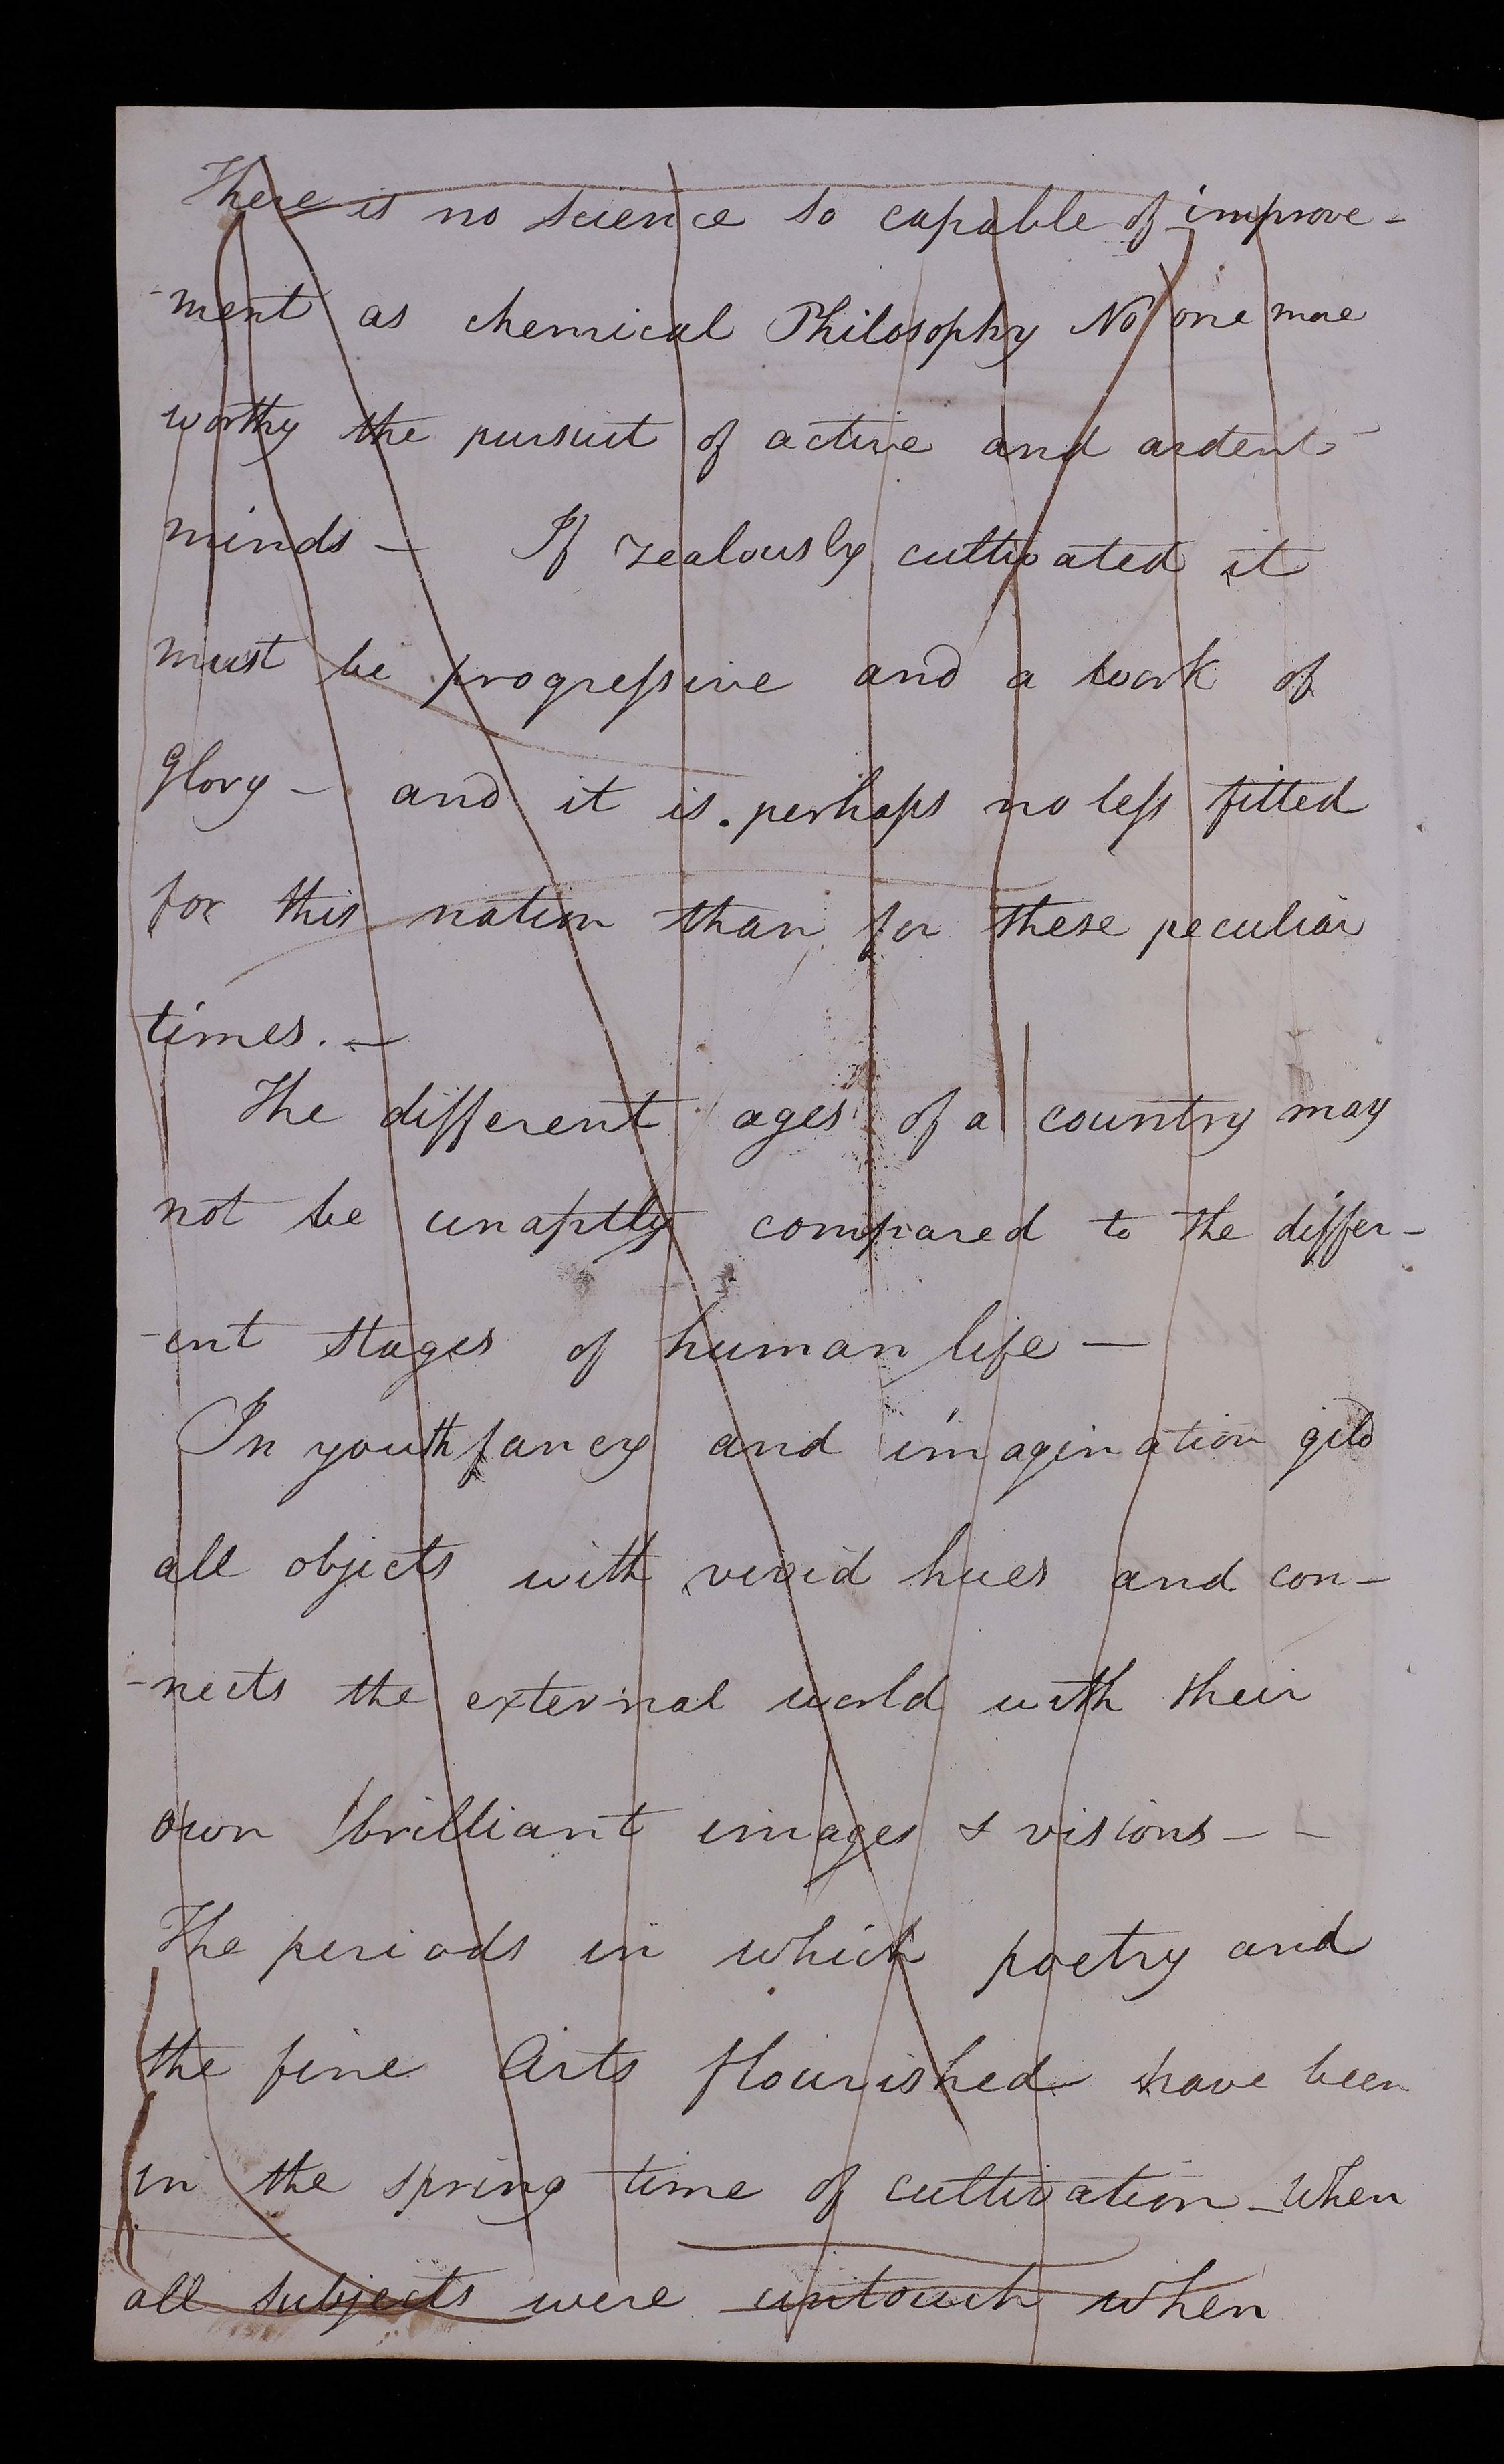 There is no science so capable of improve-
-ment as chemical Philosophy No one more
worthy the pursuit of active and ardent
minds - If zealously cultivated it
must be progressive and a work of
glory - and it is perhaps no less fitted
for this nation than for these peculiar
times. -
The different ages of a country may
not be unaptly compared to the differ-
-ent stages of human life -
In youth fancy and imagination gild
all objects with vivid hues and con-
-nects the external world with their
own brilliant images & visions - -
The periods in which poetry and
the fine Arts flourished have been
in the spring time of cultivation - When
all subjects were untouch when